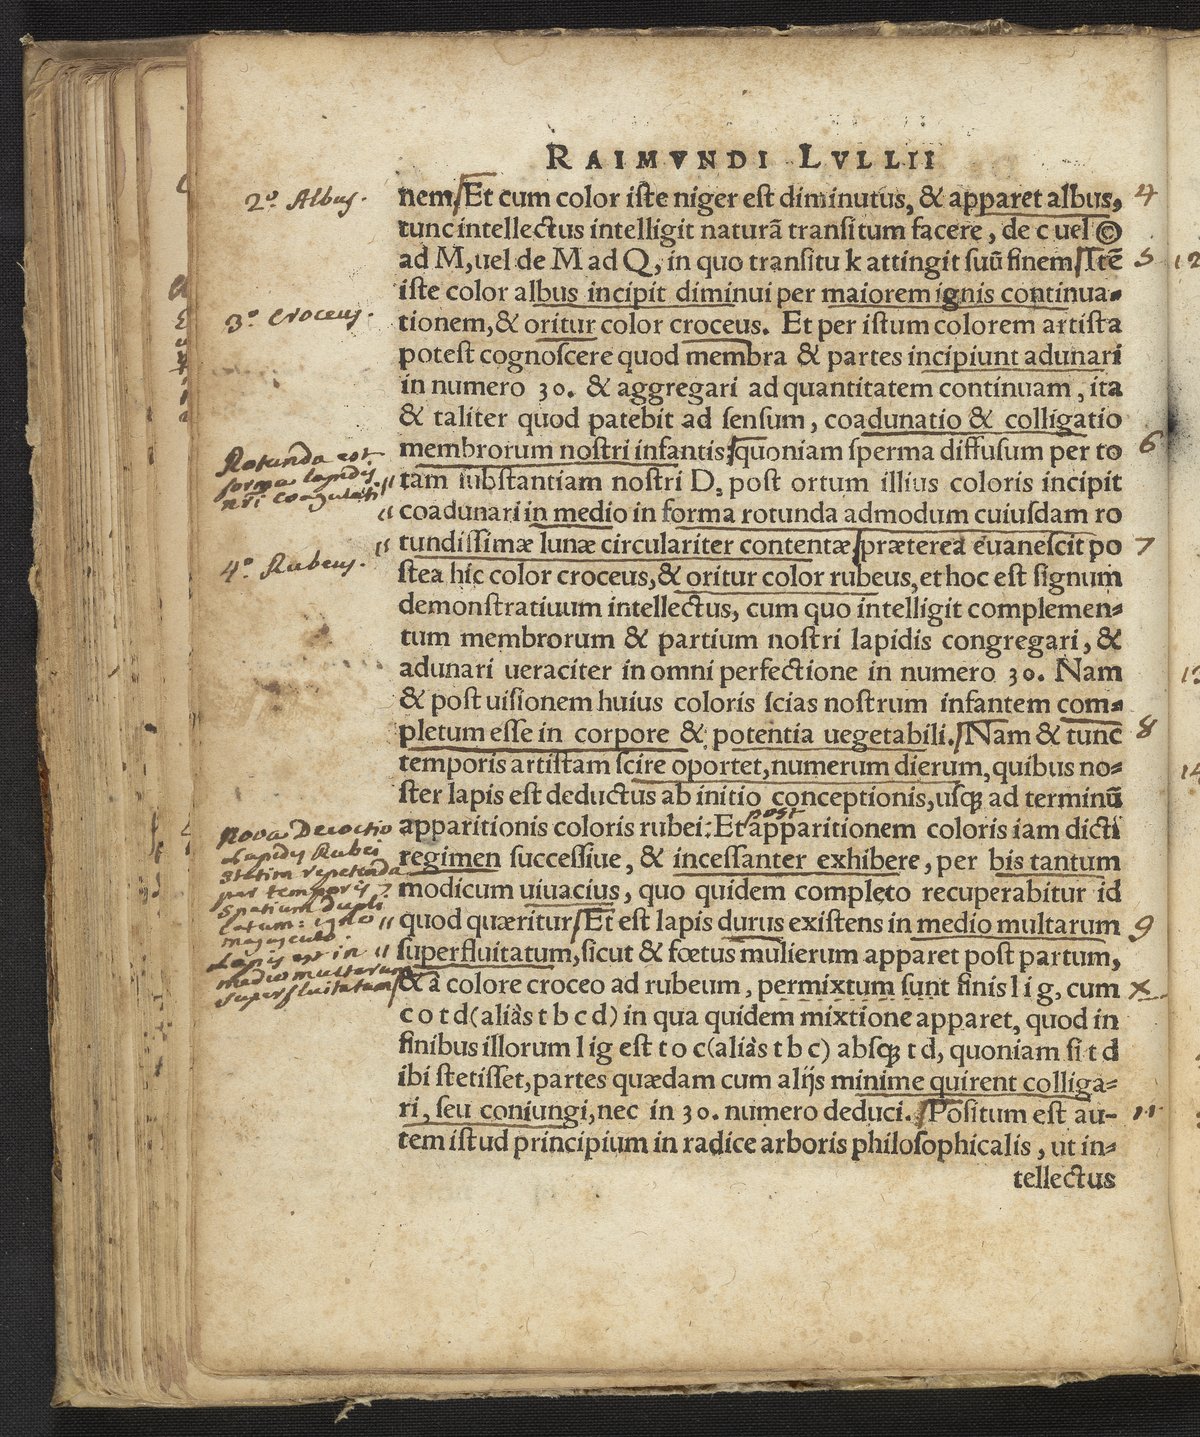 RAIMVNDI LVLLII
2.º Albus.
nem. Et cum color iſte niger eſt diminutus, & apparet albus, 4
tunc intellectus intelligit naturã tranſitum facere, de c uel ©
ad M, uel de M ad Q, in quo tranſitu k attingit ſuũ finem. Itẽ 5
iſte color albus incipit diminui per maiorem ignis continua-
3.º Croceus.
tionem, & oritur color croceus. Et per iſtum colorem artiſta
poteſt cognoſcere quod membra & partes incipiunt adunari
in numero 30. & aggregari ad quantitatem continuam, ita
& taliter quod patebit ad ſenſum, coadunatio & colligatio
membrorum noſtri infantis: quoniam ſperma diffuſum per to 6
Rotunda est
forma lapidis
nr̃i coagulati
tam ſubſtantiam noſtri D, poſt ortum illius coloris incipit
coadunari in medio in forma rotunda admodum cuiuſdam ro
tundiſſimæ lunæ circulariter contentæ, præterea euaneſcit po 7
4.º Rubeus.
ſtea hic color croceus, & oritur color rubeus, et hoc eſt ſignum
demonſtratiuum intellectus, cum quo intelligit complemen-
tum membrorum & partium noſtri lapidis congregari, &
adunari ueraciter in omni perfectione in numero 30. Nam
& poſt uiſionem huius coloris ſcias noſtrum infantem com-
pletum eſſe in corpore & potentia uegetabili. Nam & tunc 8
temporis artiſtam ſcire oportet, numerum dierum, quibus no-
ſter lapis eſt deductus ab initio conceptionis, uſq; ad terminũ
post
apparitionis coloris rubei: Et apparitionem coloris iam dicti
Nova Decoctio
Lapidis Rubei
statim repetenda
per temporis
spatium dupli
catum: igne
majusculo.
regimen ſucceſſiue, & inceſſanter exhibere, per bis tantum
modicum uiuacius, quo quidem completo recuperabitur id
quod quæritur. Et eſt lapis durus exiſtens in medio multarum 9
Lapis est in
medio multarum
superfluitatum
ſuperfluitatum, ſicut & fœtus mulierum apparet poſt partum,
& à colore croceo ad rubeum, permixtum ſunt finis l i g, cum X
c o t d (aliàs t b c d) in qua quidem mixtione apparet, quod in
finibus illorum l i g eſt t o c (aliàs t b c) abſq; t d, quoniam ſi t d
ibi ſtetiſſet, partes quædam cum alijs minime quirent colliga-
ri, ſeu coniungi, nec in 30. numero deduci. Poſitum eſt au- 11
tem iſtud principium in radice arboris philoſophicalis, ut in-
tellectus